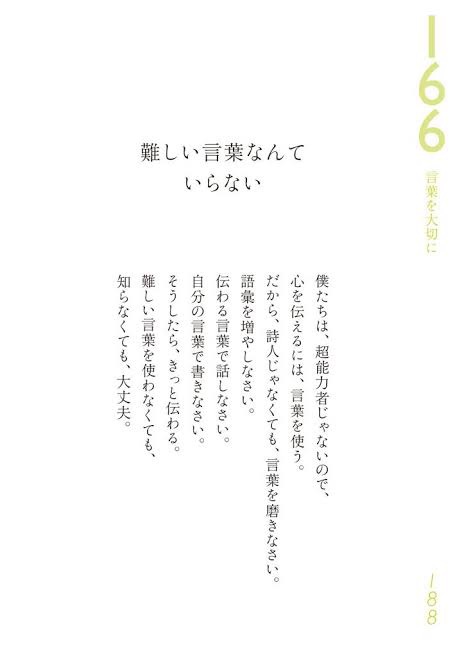 166
言葉を大切に
難しい言葉なんて
いらない
僕たちは、超能力者じゃないので、
心を伝えるには、言葉を使う。
だから、詩人じゃなくても、言葉を磨きなさい。
語彙を増やしなさい。
伝わる言葉で話しなさい。
自分の言葉で書きなさい。
そうしたら、きっと伝わる。
難しい言葉を使わなくても、
知らなくても、大丈夫。
188